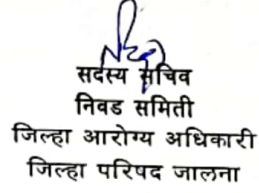 सदस्य सचिव
निवड समिती
जिल्हा आरोग्य अधिकारी
जिल्हा परिषद जालना